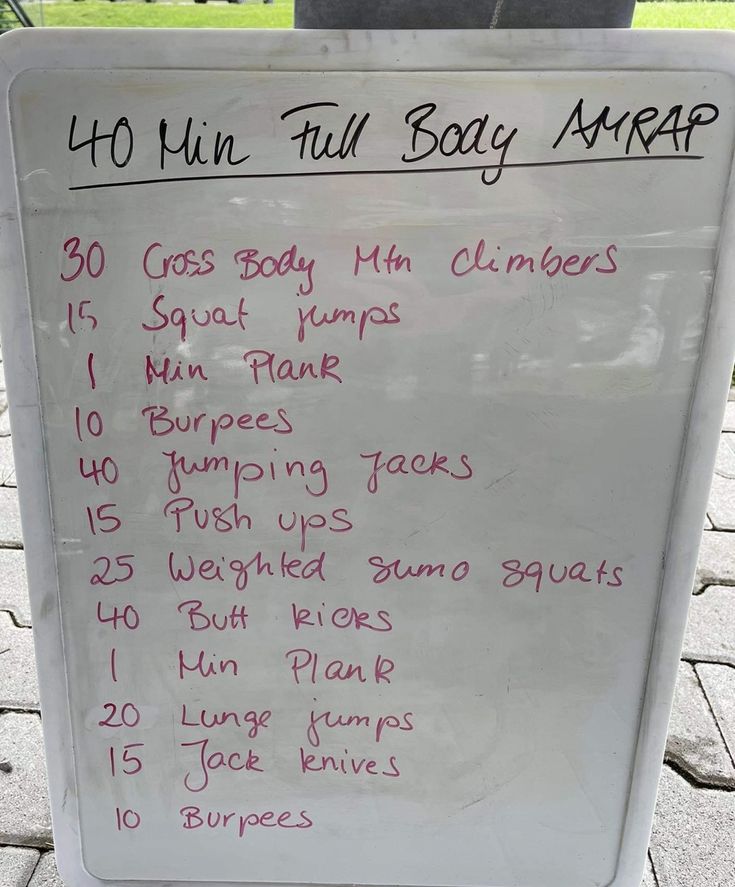 40 Min Full Body AMRAP
30 Cross Body Mtn climbers
15 Squat jumps
1 Min Plank
10 Burpees
40 Jumping Jacks
15 Push ups
25 Weighted sumo squats
40 Butt kicks
1 Min Plank
20 Lunge jumps
15 Jack knives
10 Burpees